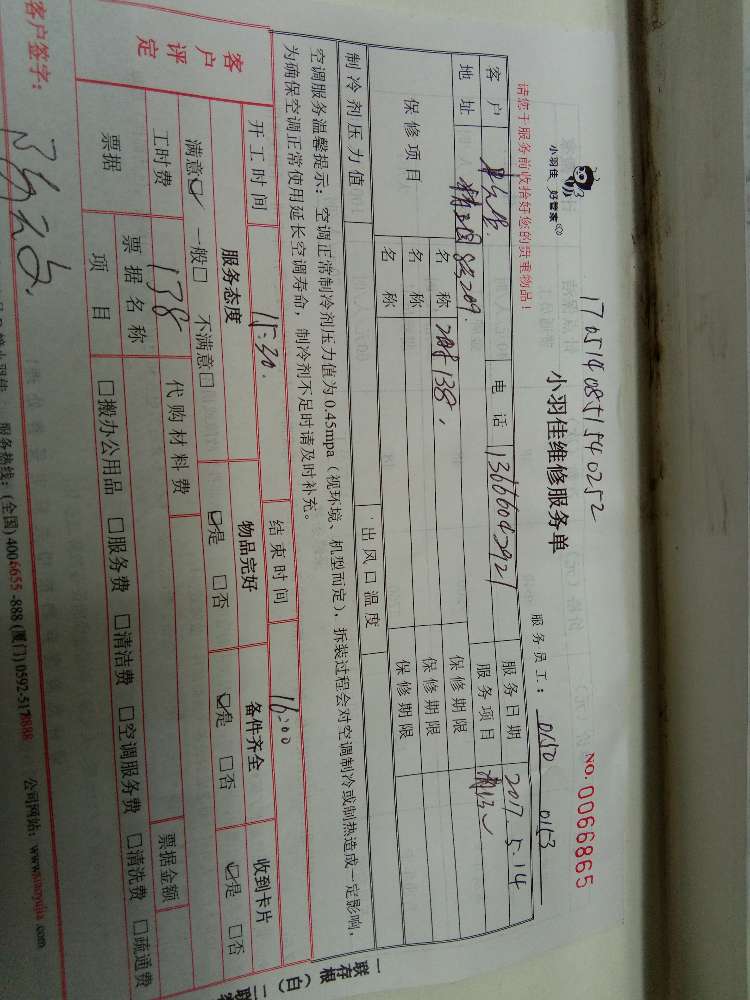 170514085154 0252
小羽佳 好管家
小羽佳维修服务单
NO. 0066865
请您于服务前收拾好您的贵重物品！
服务员工： 0150 0153
客户 电话 13666083921 服务日期 2017.5.14
地址 服务项目
保修项目 名称 保修期限
名称 保修期限
名称 保修期限
制冷剂压力值 出风口温度
空调服务温馨提示：空调正常制冷剂压力值为0.45mpa（视环境、机型而定），拆装过程会对空调制冷或制热造成一定影响，
为确保空调正常使用延长空调寿命，制冷剂不足时请及时补充。
开工时间 15:30. 结束时间 16:00
客户评定 服务态度 物品完好 备件齐全 收到卡片
满意☑ 一般□ 不满意□ ☑是 □否 ☑是 □否 ☑是 □否
工时费 138 代购材料费 票据金额
票据 票据名称
项目 □搬办公用品 □服务费 □清洁费 □空调服务费 □清洗费 □疏通费
客户签字：
服务热线：(全国) 4006655-888 (厦门) 0592-5178888 公司网站：www.xiaoyujia.com
一联存根（白）二联